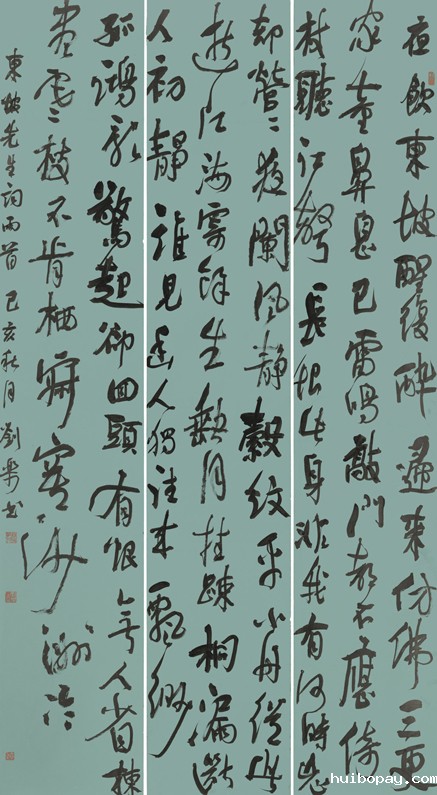 夜飲東坡醒復醉歸來仿佛三更
家童鼻息已雷鳴敲門都不應倚
杖聽江聲長恨此身非我有何時忘
却營〻夜闌風靜縠紋平小舟從此
逝江海寄餘生缺月挂疎桐漏斷
人初靜誰見幽人獨往來飄緲
孤鴻影驚起卻回頭有恨無人省揀
盡寒枝不肯栖寂寞沙洲冷
東坡先生詞兩首 己亥秋月 劉 書
huibopay.com